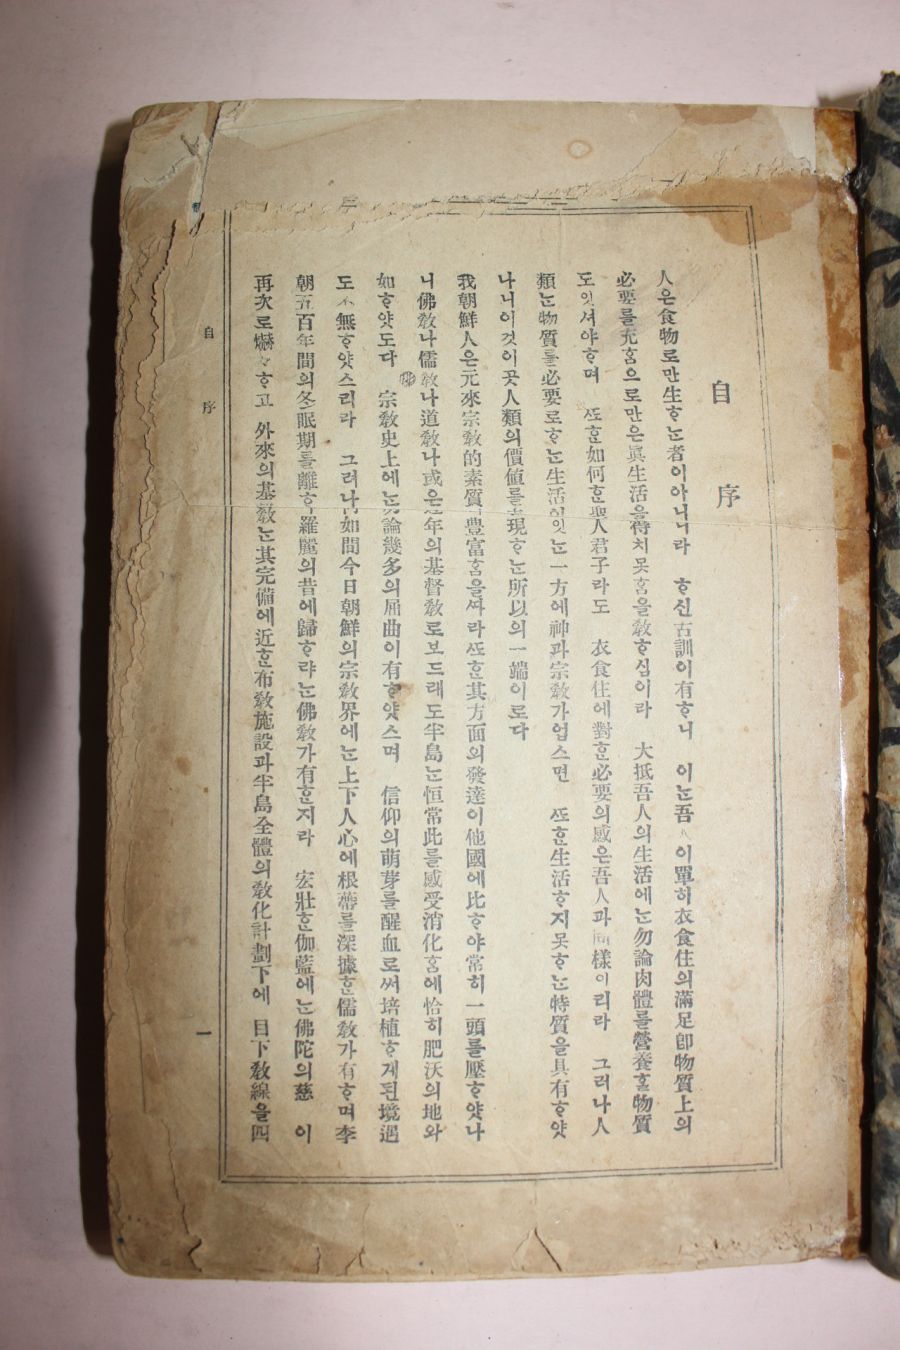 自序
人은食物로만生ᄒᆞᄂᆞᆫ者이아니니라 ᄒᆞ신古訓이有ᄒᆞ니 이ᄂᆞᆫ吾 이單히衣食住의滿足卽物質上의
必要를充ᄒᆞᆷ으로만은眞生活을得치못ᄒᆞᆷ을敎ᄒᆞ심이라 大抵吾人의生活에ᄂᆞᆫ勿論肉體를營養ᄒᆞᆯ物質
도잇셔야ᄒᆞ며 ᄯᅩᄒᆞᆫ如何ᄒᆞᆫ聖人君子라도 衣食住에對ᄒᆞᆫ必要의感은吾人과同樣이리라 그러나人
類ᄂᆞᆫ物質를必要로ᄒᆞᄂᆞᆫ生活이잇ᄂᆞᆫ一方에神과宗敎가업스면 ᄯᅩᄒᆞᆫ生活ᄒᆞ지못ᄒᆞᄂᆞᆫ特質을具有ᄒᆞ얏
나니이것이곳人類의價値를表現ᄒᆞᄂᆞᆫ所以의一端이로다
我朝鮮人은元來宗敎的素質 豊富ᄒᆞᆷ을ᄯᅡ라ᄯᅩᄒᆞᆫ其方面의發達이他國에比ᄒᆞ야常히一頭를壓ᄒᆞ얏나
니佛敎나儒敎나道敎나或은 年의基督敎로보드래도半島ᄂᆞᆫ恒常此를感受消化ᄒᆞᆷ에恰히肥沃의地와
如ᄒᆞ얏도다 宗敎史上에ᄂᆞᆫ勿論幾多의屈曲이有ᄒᆞ얏스며 信仰의萌芽를醒血로써培植ᄒᆞ게된境遇
도不無ᄒᆞ얏스리라 그러나 如間今日朝鮮의宗敎界에ᄂᆞᆫ上下人心에根蔕를深據ᄒᆞᆫ儒敎가有ᄒᆞ며李
朝五百年間의冬眠期를離ᄒᆞ 羅麗의昔에歸ᄒᆞ랴ᄂᆞᆫ佛敎가有ᄒᆞᆫ지라 宏壯ᄒᆞᆫ伽藍에ᄂᆞᆫ佛陀의慈 이
再次로爀々ᄒᆞ고 外來의基敎ᄂᆞᆫ其完備에近ᄒᆞᆫ布敎施設과半島全體의敎化計劃下에 目下敎線을四
自序
一